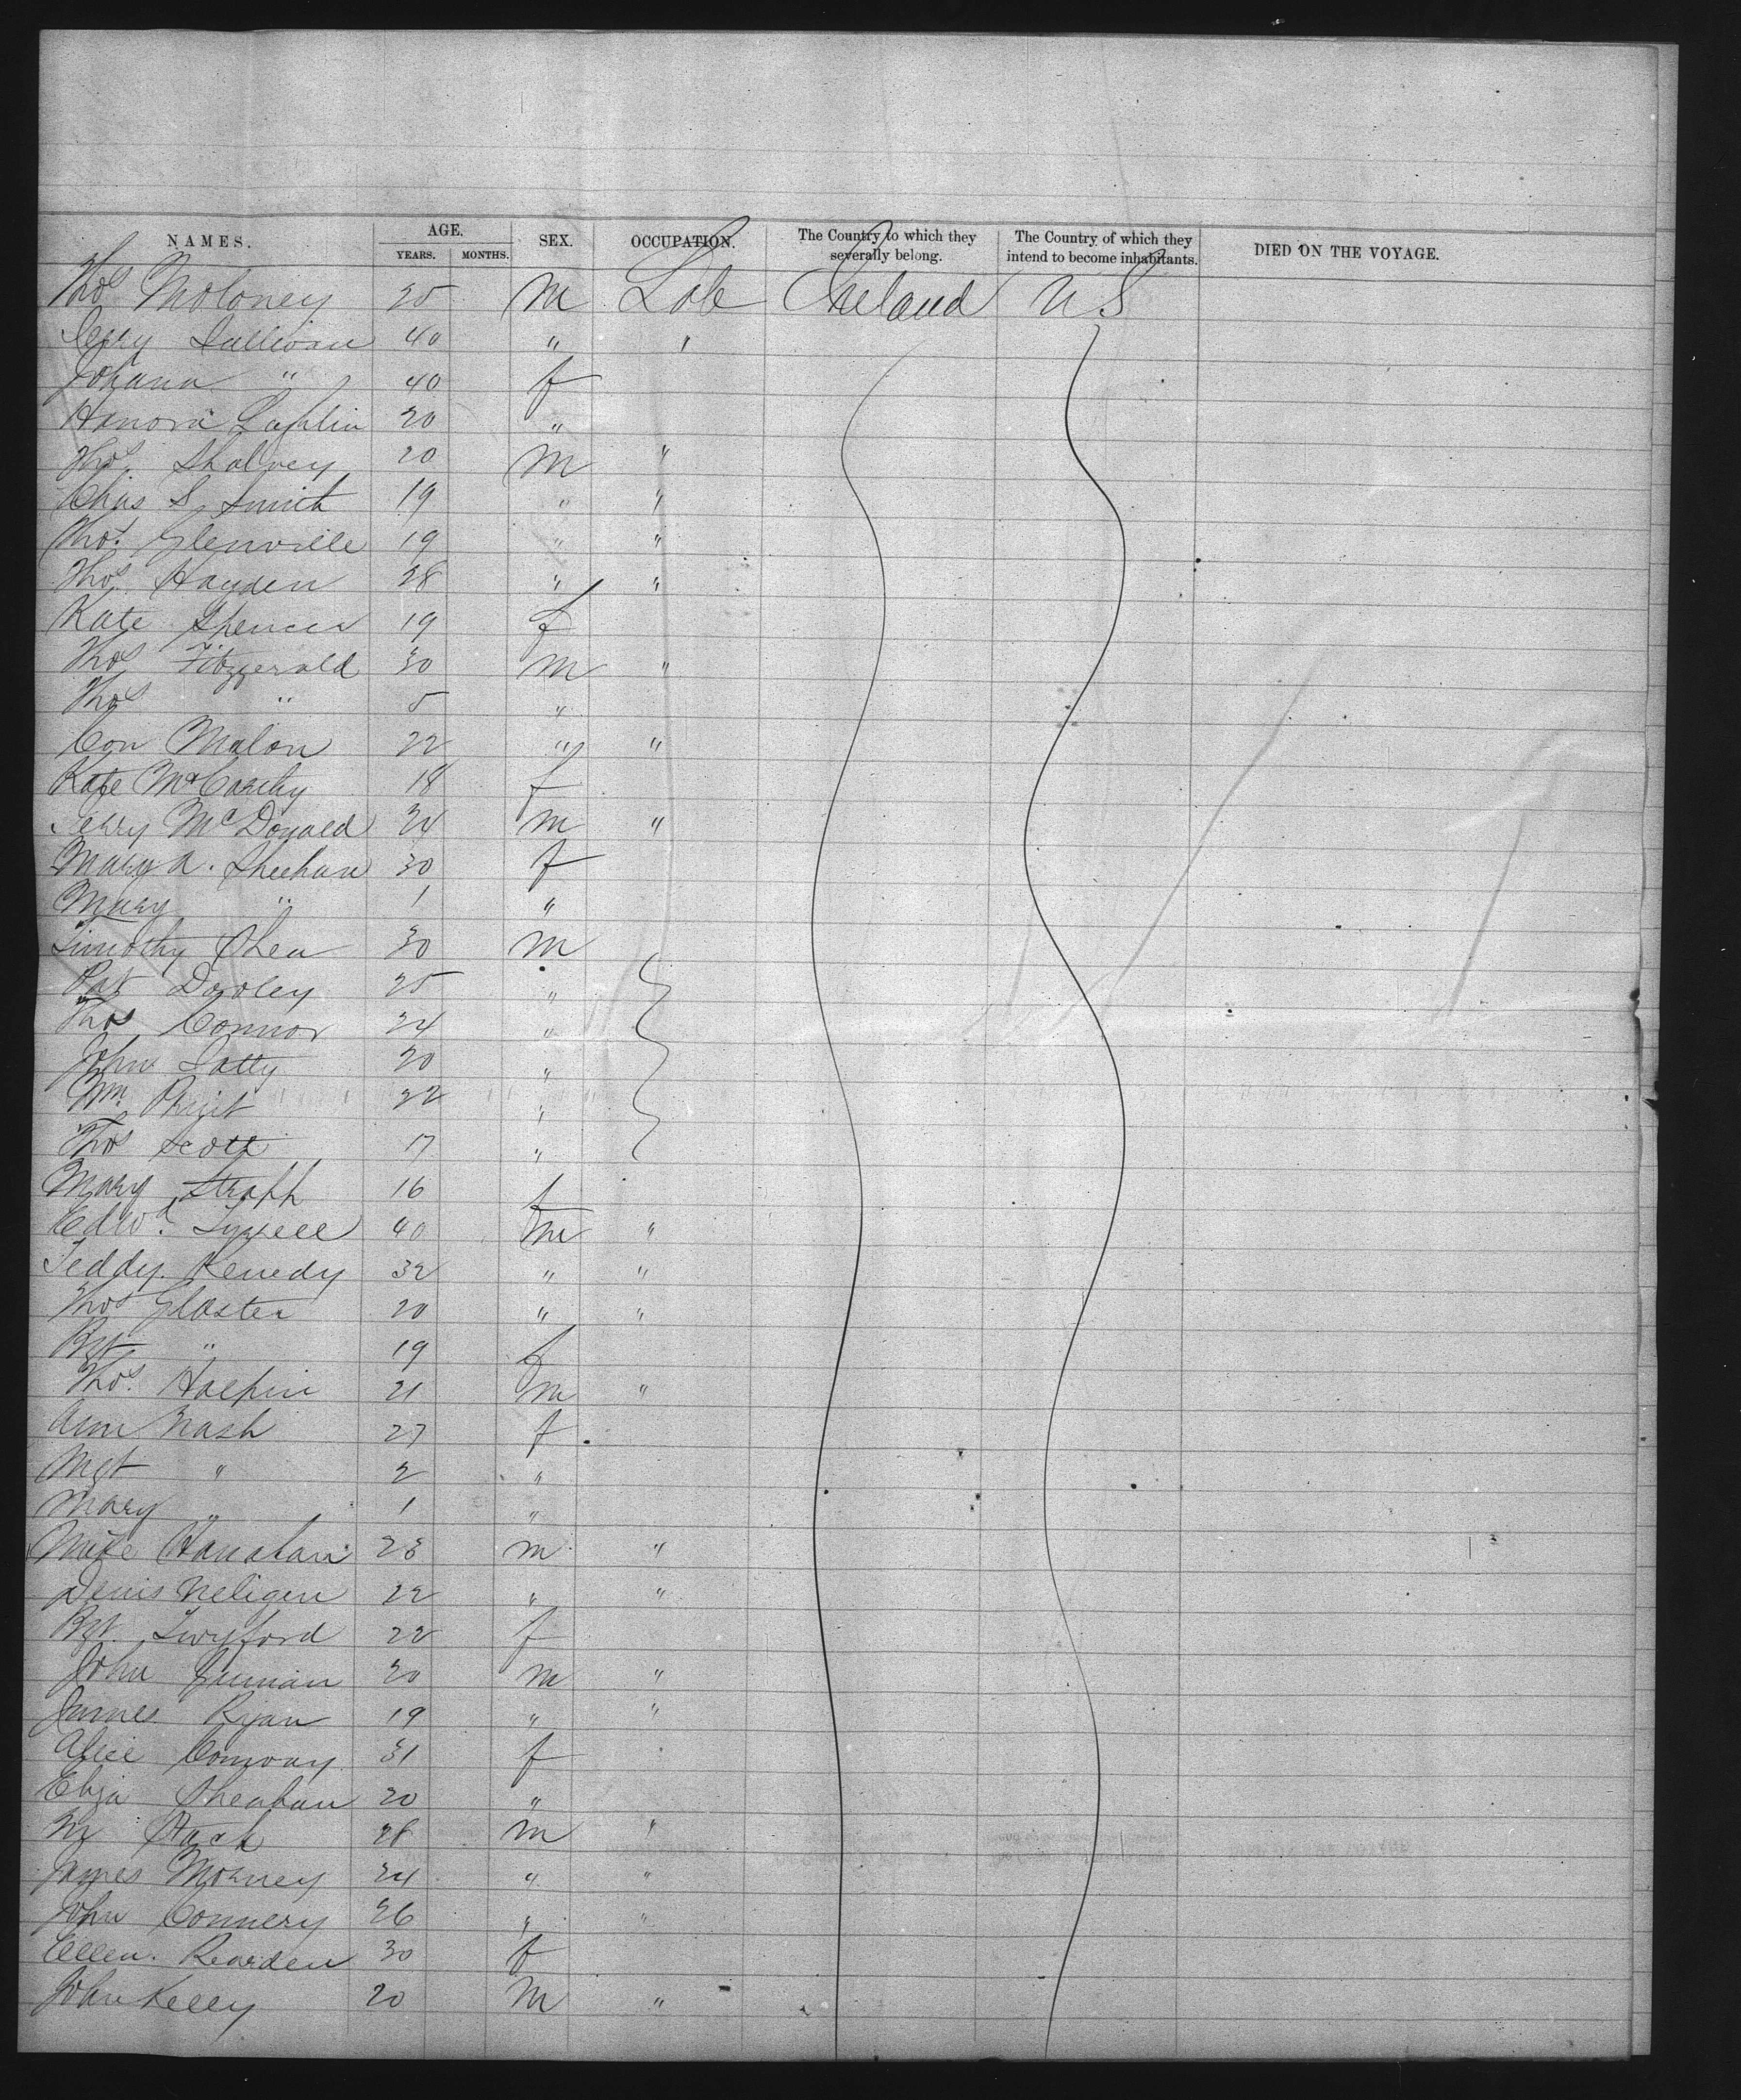 NAMES. AGE. YEARS. MONTHS. SEX. OCCUPATION. The Country to which they severally belong. The Country of which they intend to become inhabitants. DIED ON THE VOYAGE.
Thos Moloney 25 m Lab Ireland U S
Jerry Sullivan 40 " "
Johana " 40 f
Hanora 20 "
Thos. Shalvey 20 m "
Chas S Smith 19 " "
Thos. Glenville 19 " "
Thos. Hayden 28 " "
Kate Spencer 19 f
Thos Fitzgerald 30 m "
Thos " 5 "
Con Malon 22 " "
Kate McCarthy 18 f
Jerry McDonald 24 m "
Mary A. Sheehan 30 f
Mary " 1 "
Timothy Shea 30 m
Pat Dooley 25 "
Thos Connor 24 "
John 20 "
Wm. 22 "
Thos Scott 17 "
Mary 16 f
Edwd. Tyrrell 40 m "
Teddy Kenedy 32 " "
Thos Glaster 20 " "
Bgt " 19 f
Thos. Halpin 21 m "
Ann Nash 27 f
Mgt " 2 "
Mary " 1 "
Mike Hanahan 23 m "
Denis Neligen 22 " "
Bgt. Twyford 22 f
John 20 m "
James Ryan 19 " "
Alice Conway 31 f
Eliza Sheahan 20 "
28 m "
James 24 " "
John Connery 26 " "
Ellen Rearden 30 f
John Kelly 20 m "